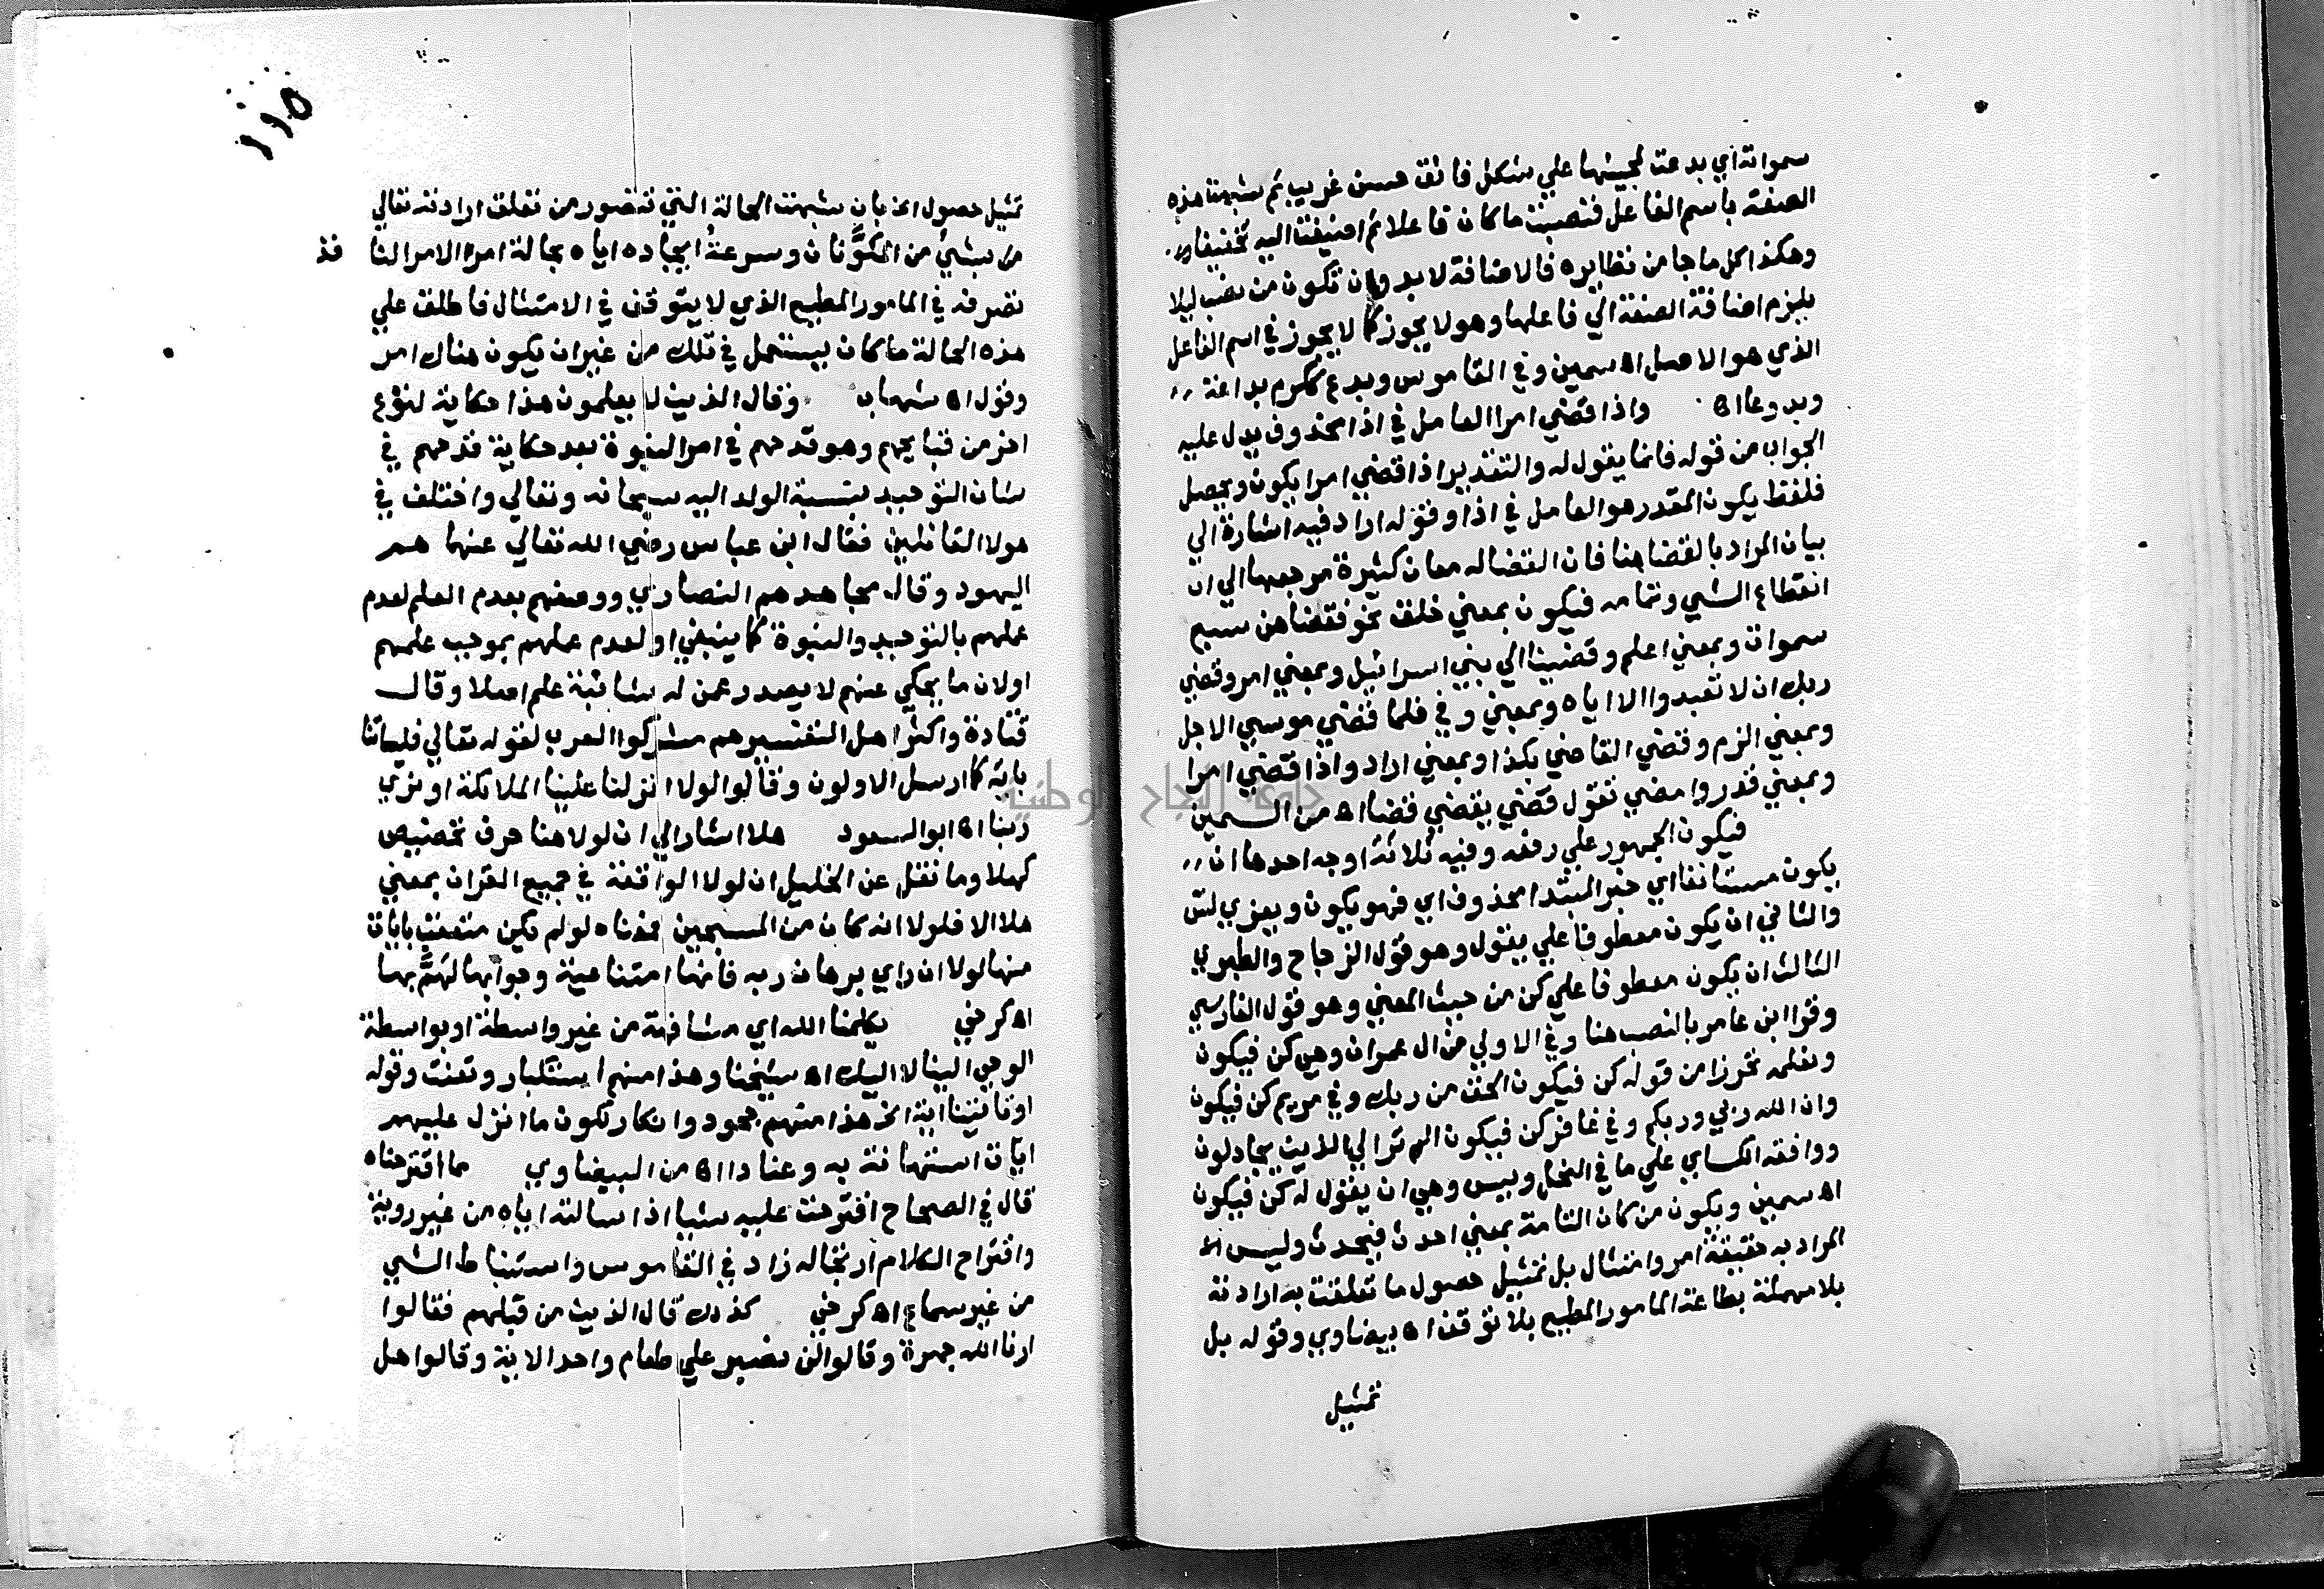 سمواته اي بدعت لمجيئها علي شكل فائق حسن غريب ثم شبهت هذه
الصفة باسم الفاعل فنصبت ما كان فاعلا ثم اضيفت اليه تخفيفا
وهكذا كل ما جا من نظايره فالاضافة لا بد وان تكون من نصب ليلا
يلزم اضافة الصفة الي فاعلها وهو لا يجوز كما لا يجوز في اسم الفاعل
الذي هو الاصل اه سمين وفي القاموس وبدع ككرم بداعة
وبدوعا اه واذا قضي امرا العامل في اذا محذوف يدل عليه
الجواب من قوله فانما يقول له والتقدير اذا قضي امرا يكون ويحصل
فلفظ يكون المقدر هو العامل في اذا وقوله اراد فيه اشارة الي
بيان المراد بالقضا هنا فان القضا له معان كثيرة مرجعها الي ان
انقطاع الشي وتمامه فيكون بمعني خلق نحو فقضاهن سبع
سموات وبمعني اعلم وقضينا الي بني اسرائيل وبمعني امر وقضي
ربك ان لا تعبدوا الا اياه وبمعني وفي فلما قضي موسي الاجل
وبمعني الزم وقضي القاضي بكذا وبمعني اراد واذا قضي امرا
وبمعني قدر وامضي تقول قضي يقضي قضا اه من السمين
فيكون الجمهور علي رفعه وفيه ثلاثة اوجه احدها ان
يكون مستانفا اي خبر المبتدا محذوف اي فهو يكون ويعزي لس
والثاني ان يكون معطوفا علي يقول وهو قول الزجاج والطبري
الثالث ان يكون معطوفا علي كن من حيث المعني وهو قول الفارسي
وقرا ابن عامر بالنصب هنا وفي الاولي من ال عمران وهي كن فيكون
ونعلمه تحرزا من قوله كن فيكون الحق من ربك وفي مريم كن فيكون
وان الله ربي وربكم وفي غافر كن فيكون الم تر الي الذين يجادلون
ووافقه الكساي علي ما في النحل ويس وهي ان يقول له كن فيكون
اه سمين ويكون من كان التامة بمعني احدث فيحدث وليس
المراد به حقيقة امر وامتثال بل تمثيل حصول ما تعلقت به ارادته
بلا مهملة بطاعة المامور المطيع بلا توقف اه بيضاوي وقوله بل
تمثيل
١١٥
تمثيل حصول الخ بان شبهت الحالة التي تتصور من تعلق ارادته تعالي
من شي من المكونات وسرعة ايجاده اياه بحالة امر الامر النا فذ
تصرفه في المامور المطيع الذي لا يتوقف في الامتثال فاطلق علي
هذه الحالة ما كان يستعمل في تلك من غير ان يكون هناك امر
وقول اه شهاب وقال الذين لا يعلمون هذا حكاية لنوع
اخر من قبايحهم وهو قدحهم في امر النبوة بعد حكاية قدحهم في
شان التوحيد بنسبة الولد اليه سبحانه وتعالي واختلف في
هولا القائلين فقال ابن عباس رضي الله تعالي عنهما هم
اليهود وقال مجاهد هم النصاري ووصفهم بعدم العلم لعدم
علمهم بالتوحيد والنبوة كما ينبغي او لعدم عملهم بموجب علمهم
اولان ما يحكي عنهم لا يصدر عمن له شائبة علم اصلا وقال
قتادة واكثر اهل التفسير هم مشركوا العرب لقوله تعالي فلياتنا
باية كما ارسل الاولون وقالوا لولا انزل علينا الملائكة او نري
ربنا اه ابو السعود هلا اشار الي ان لولا هنا حرف تخصيص
كهلا وما نقل عن الخليل ان لولا الواقعة في جميع القران بمعني
هلا الا فلولا انه كان من المسبحين فمعناه لو لم يكن متعقب باياة
منها لولا ان راي برهان ربه فانها امتناعية وجوابها لهم بها
اه كرخي يكلمنا الله اي مشافهة من غير واسطة او بواسطة
الوحي الينا لا اليك اه شيخنا وهذا منهم استكبار وتعنت وقوله
او تاتينا اية الخ هذا منهم جحود وانكار لكون ما انزل عليهم
ايات استهانة به وعنادا اه من البيضاوي مما اقترحناه
قال في الصحاح اقترحت عليه شيا اذا سالته اياه من غير روية
واقتراح الكلام ارتجاله زاد في القاموس واستنباط الشي
من غير سماع اه كرخي كذلك قال الذين من قبلهم فقالوا
ارنا الله جهرة وقالوا لن نصبر علي طعام واحد الاية وقالوا هل
جامعة النجاح الوطنية